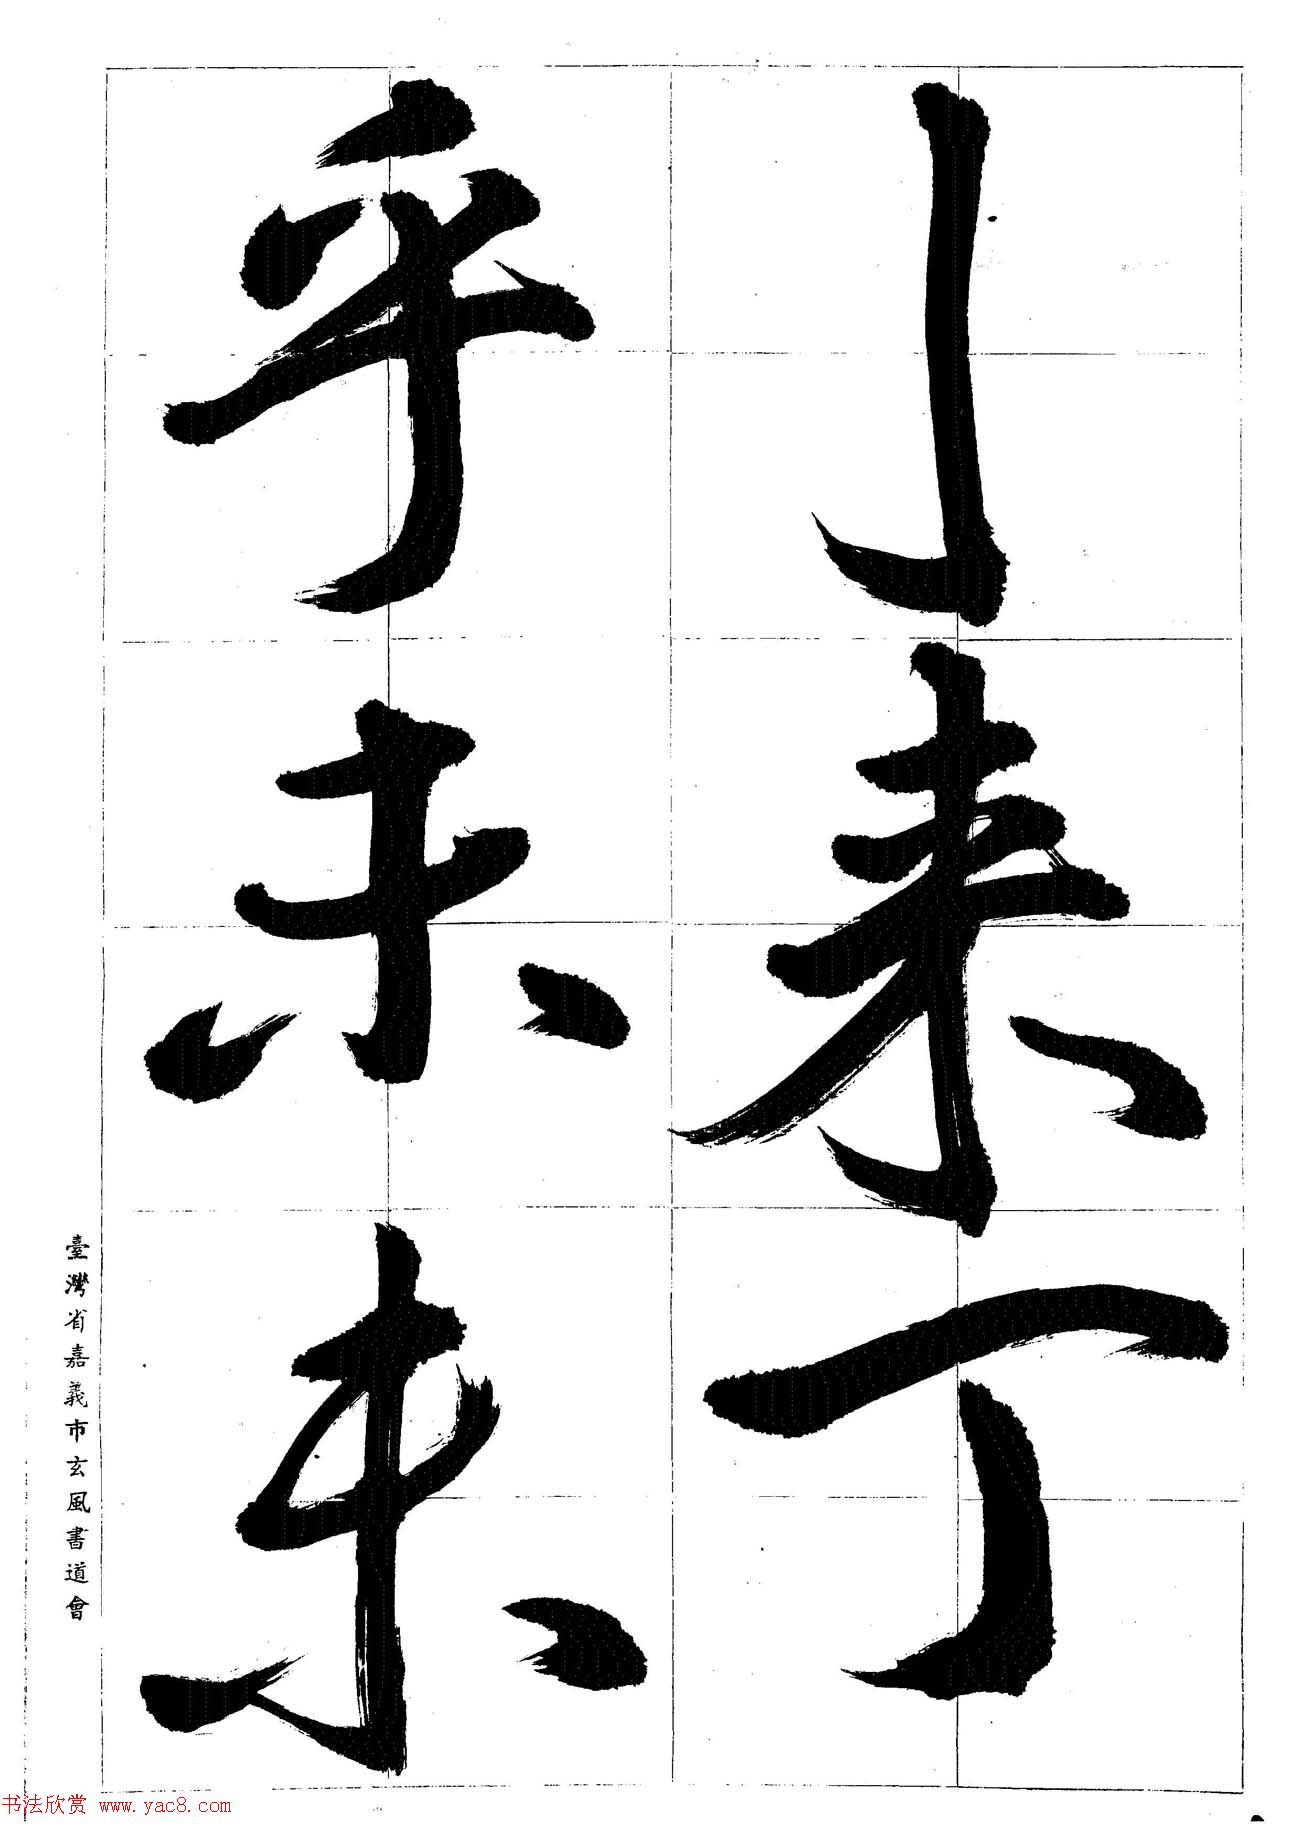 亅来丁
乎未未
臺灣省嘉義市玄風書道會
书法欣赏 www.yac8.com